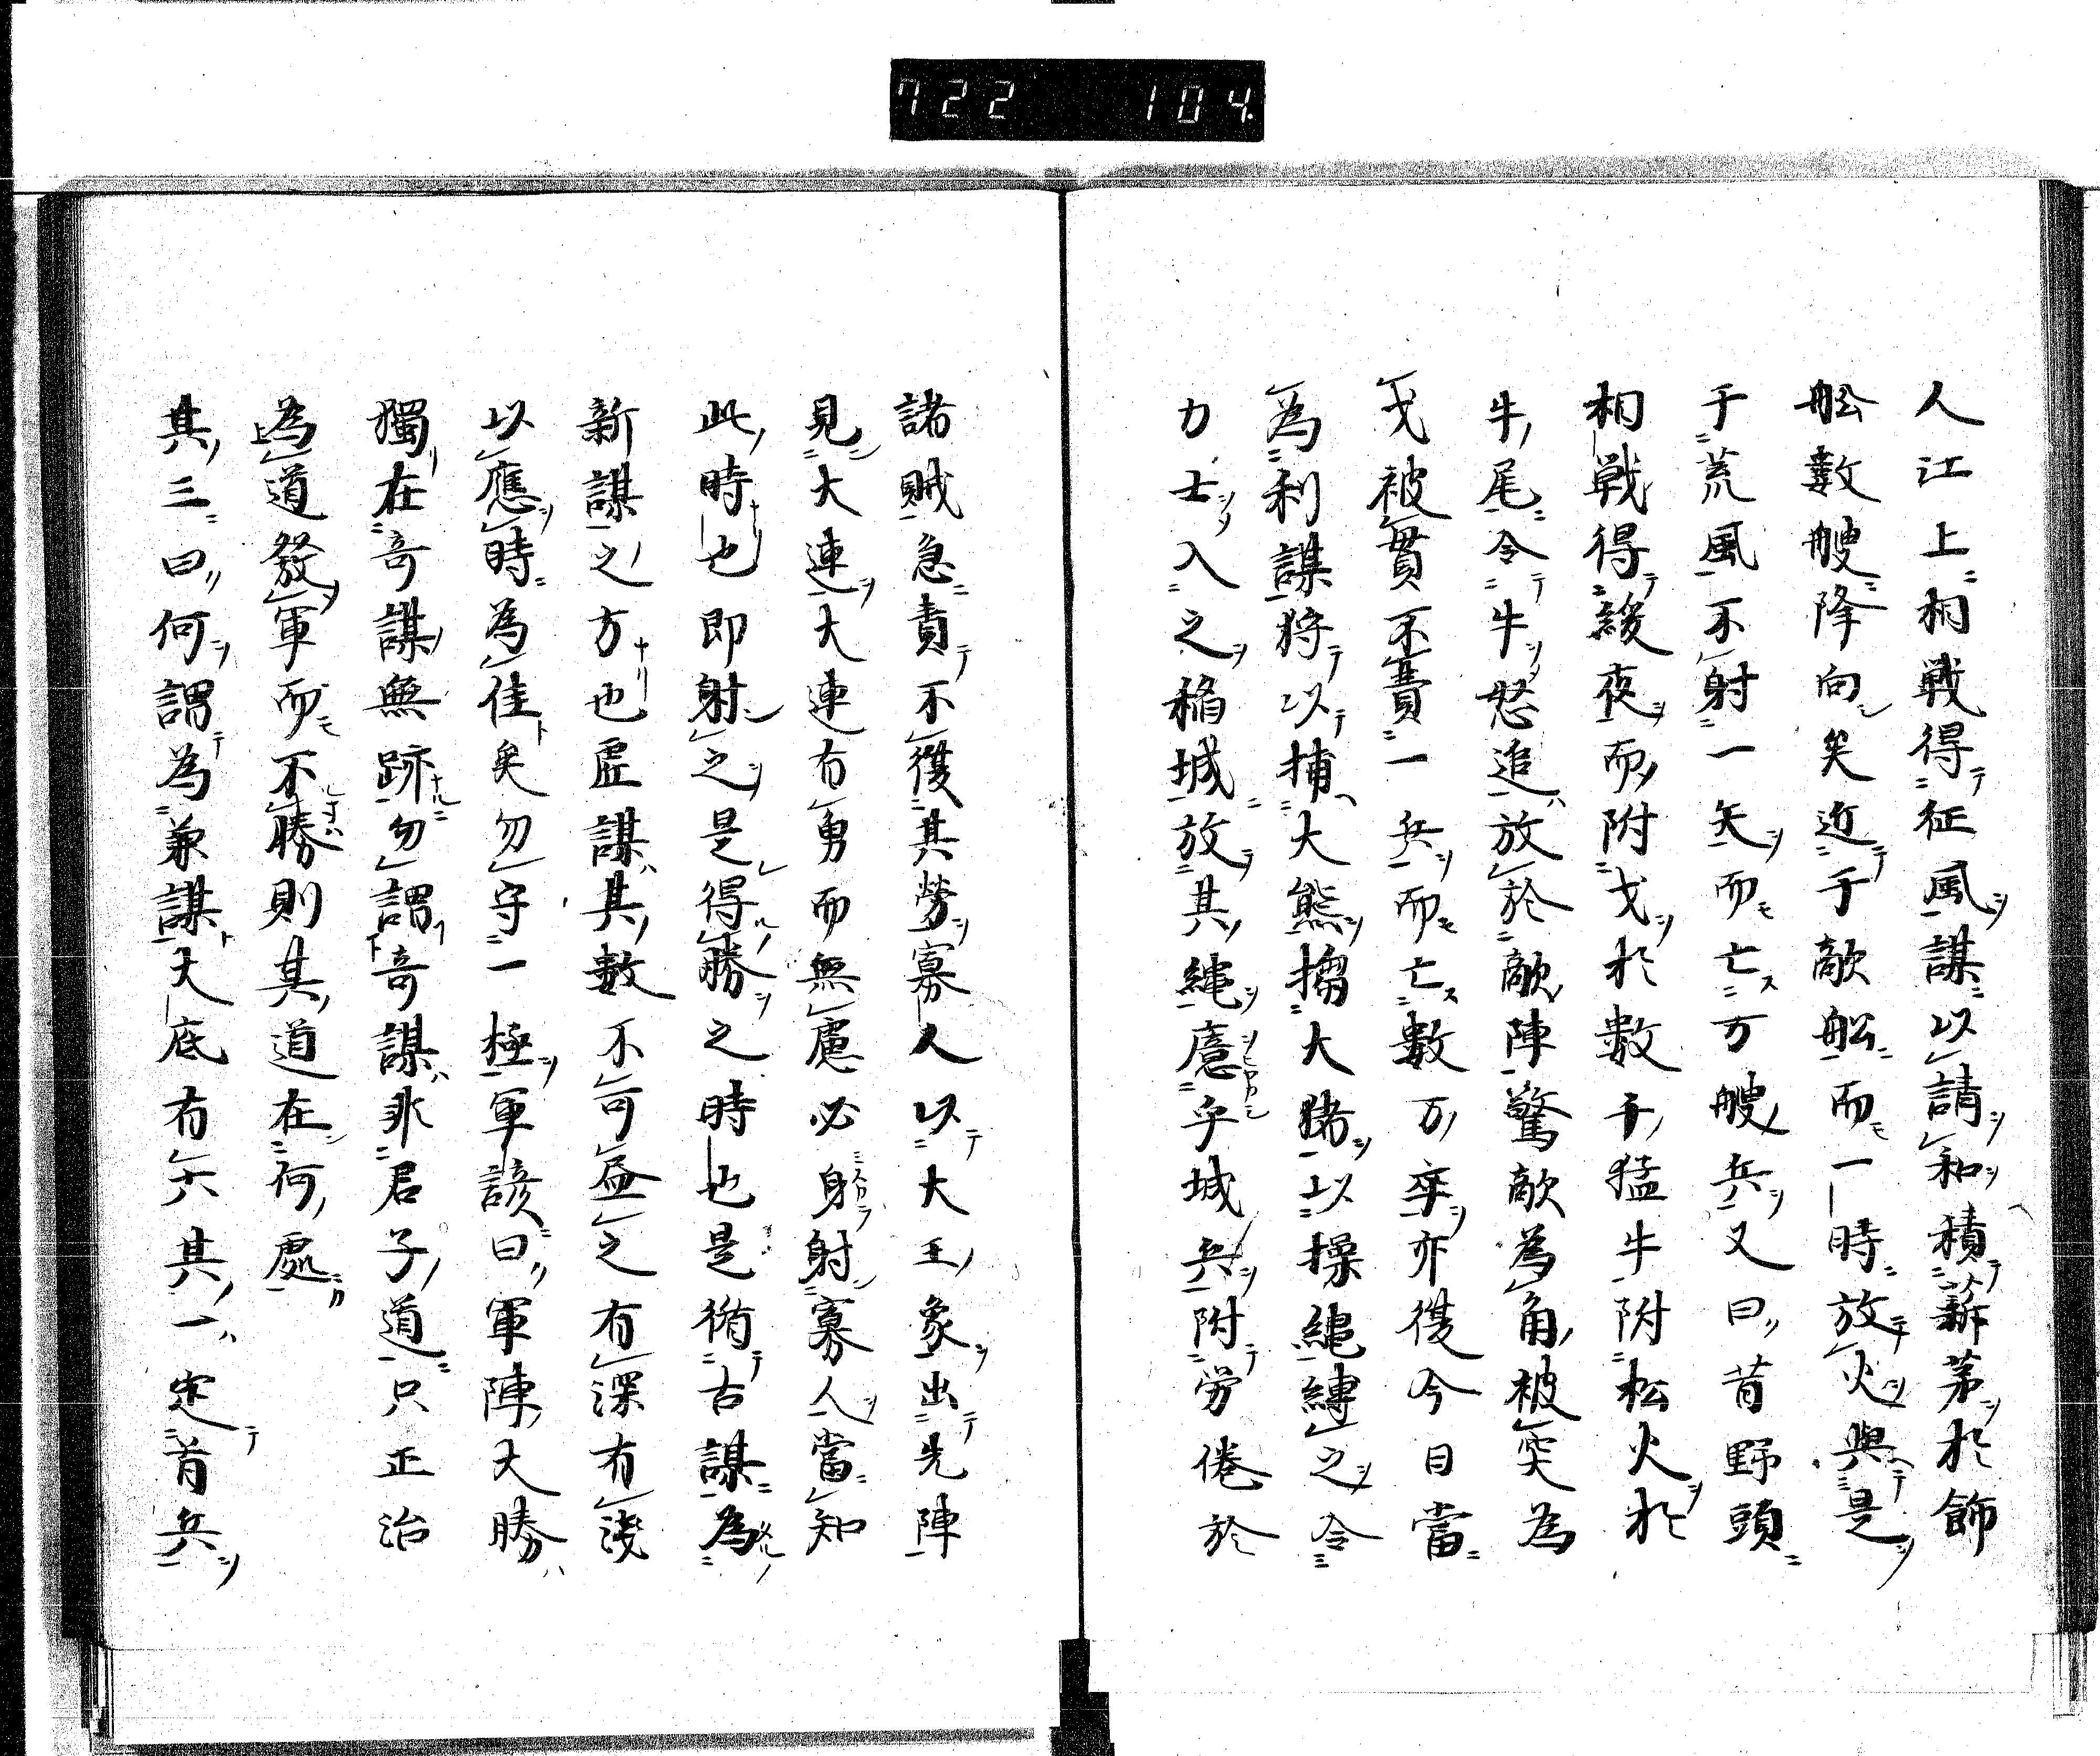 722 104.
人江上相戦得征風謀以請和積薪茅於餝
舩数艘降向矣近于敵舩而一時放火與是
于荒風不射一矢而亡万艘兵又曰昔野頭
相戦得緩夜而附戈於数千猛牛附松火於
牛尾令牛怒追放於敵陣驚敵為角被突為
戈被貫不費一兵而亡数万卒亦復今日當
為利謀狩以捕大熊搊大猪以操縄縳之令
力士入之稲城放其縄慝乎城兵附労倦於
諸賊急責不獲其勞寡人以大王象出先陣
見大連大連有勇而無慮必身射寡人當知
此時也即射之是得勝之時也是循古謀為
新謀之方也虚謀其數不可益之有深有淺
以應時為佳矣勿守一極軍諺曰軍陣大勝
獨在奇謀無跡勿謂奇謀非君子道只正治
為道發軍而不勝則其道在何處
其三曰何謂為兼謀大底有六其一定首兵